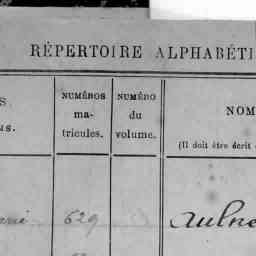 RÉPERTOIRE ALPHABÉTI
S
US.
NUMÉROS
ma-
tricules.
NUMÉRO
du
volume.
NOM
(Il doit être écrit
629
Aulne